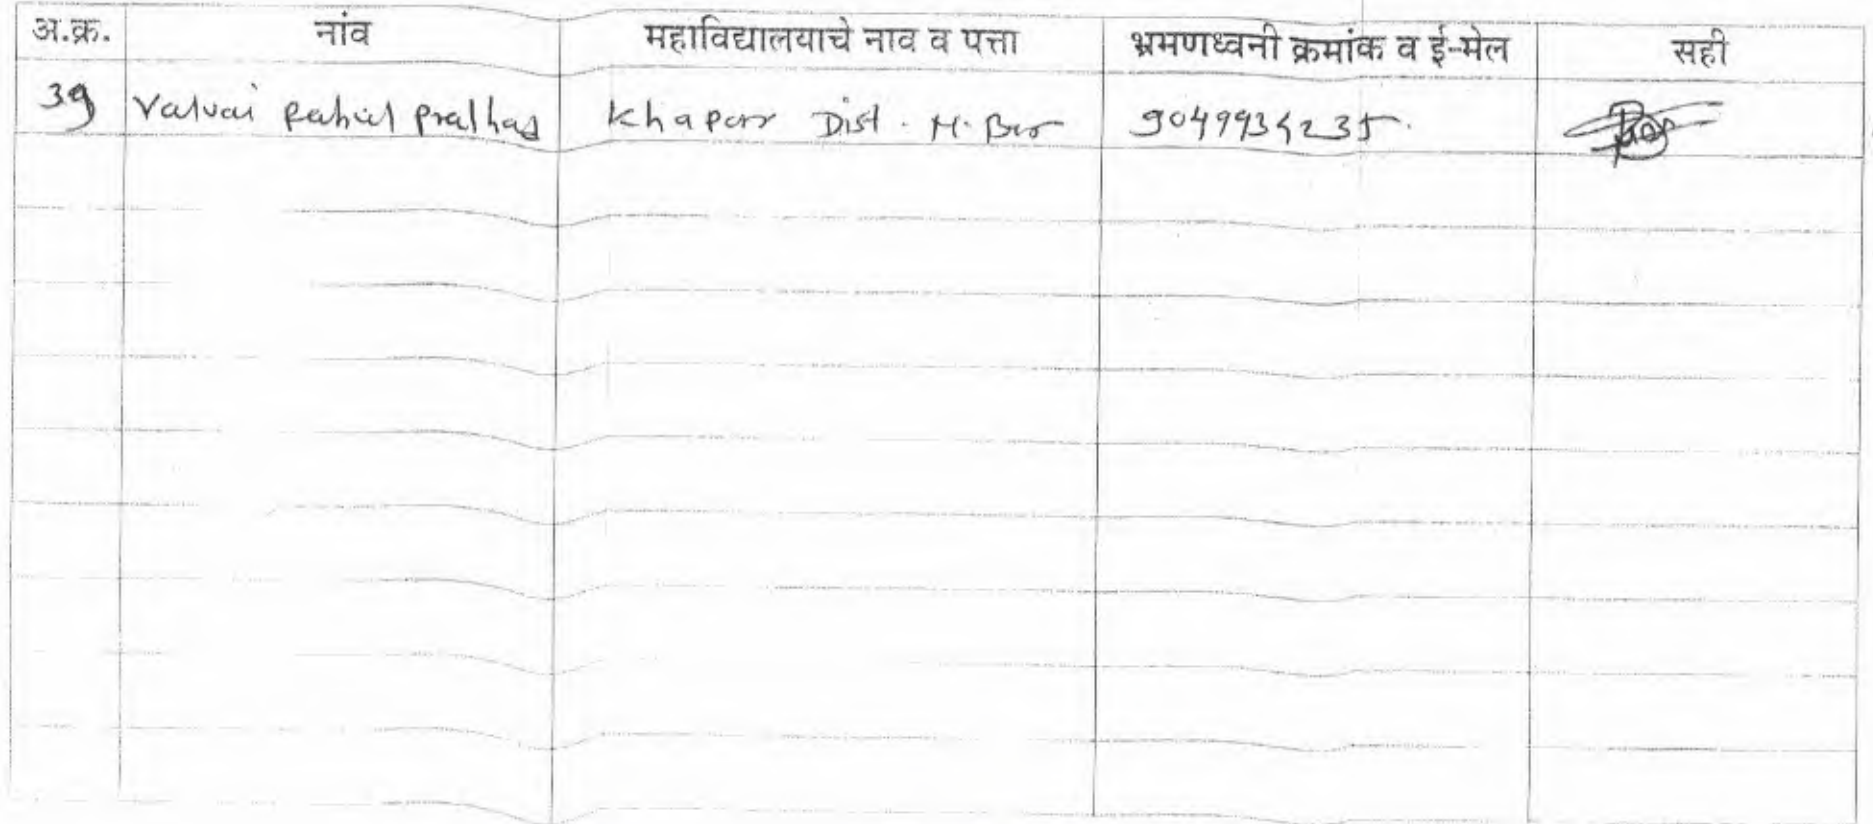 अ.क्र. नांव महाविद्यालयाचे नाव व पत्ता भ्रमणध्वनी क्रमांक व ई-मेल सही
39 Valvai Pralhad Khapar Dist. N. Bar